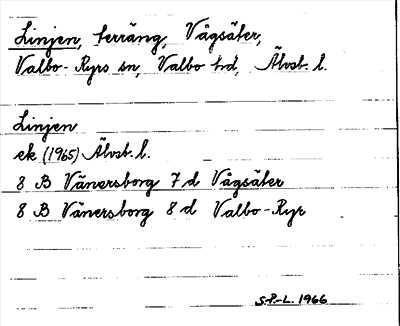 Linjen, terräng, Vågsäter,
Valbo-Ryrs sn, Valbo hd, Älvsb. l.
Linjen
ek (1965) Älvsb. l.
8 B Vänersborg 7 d Vågsäter
8 B Vänersborg 8 d Valbo-Ryr
S.P.-L. 1966